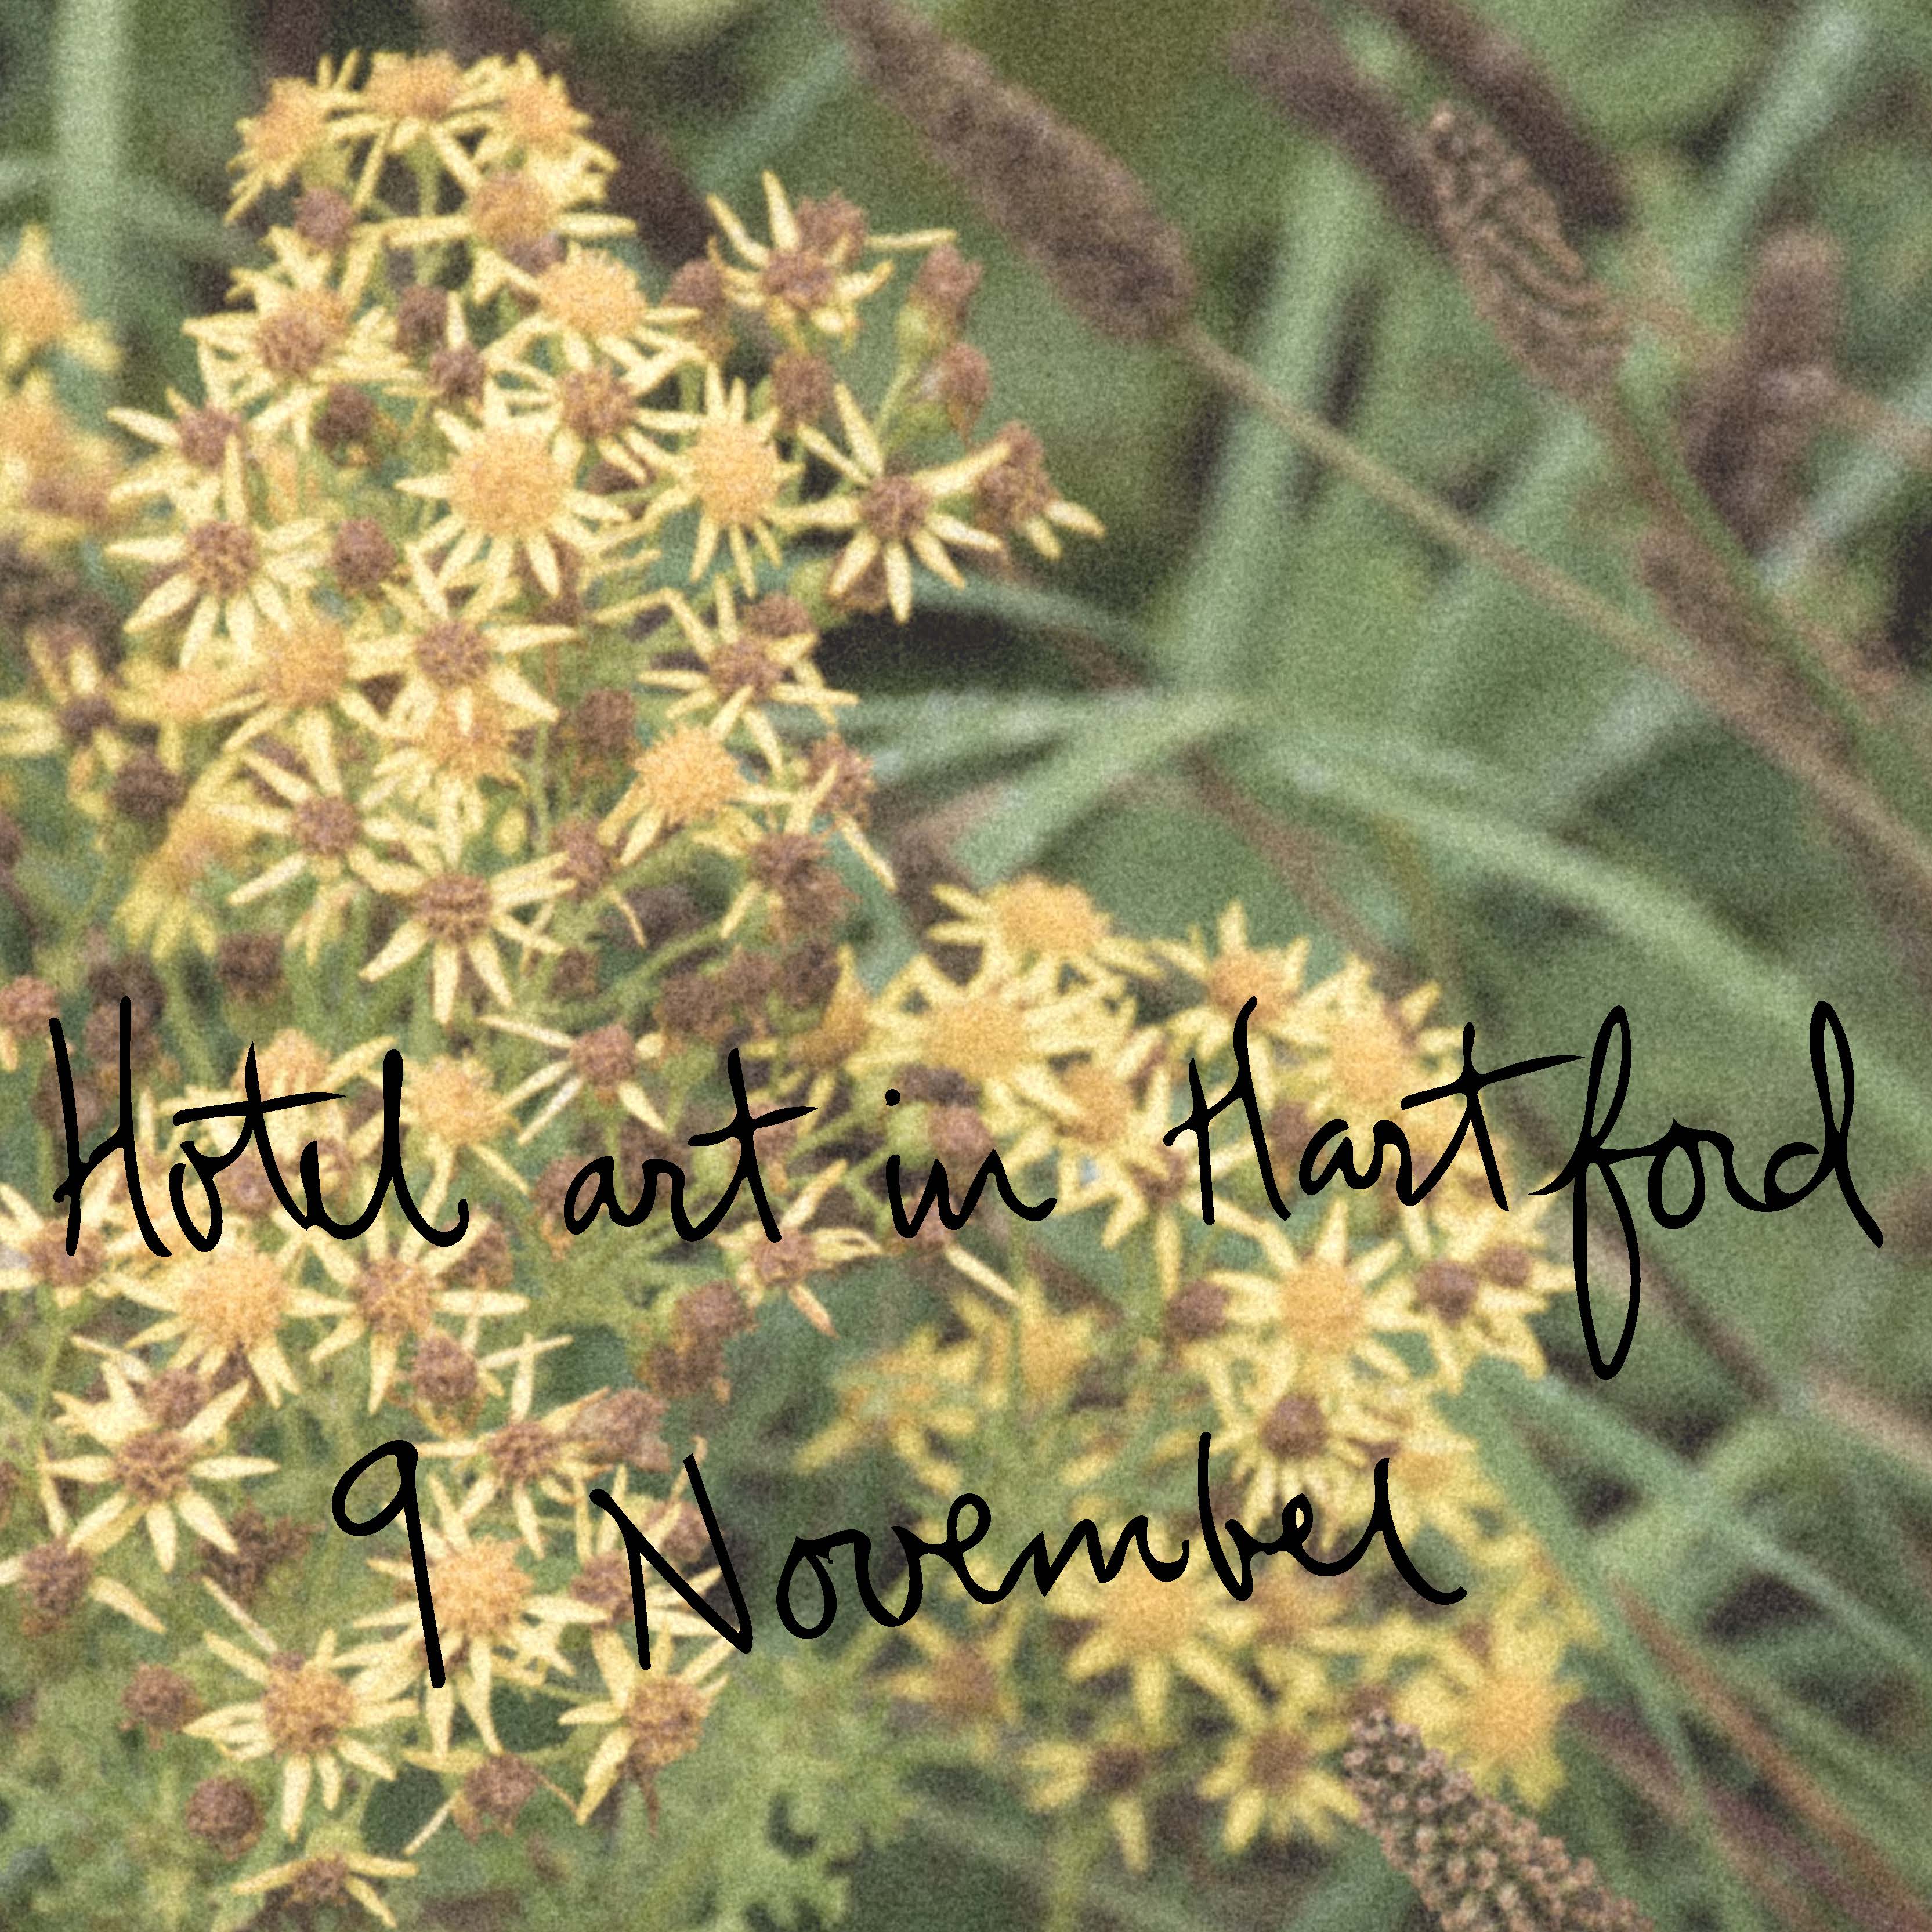 Hotel art in Hartford
9 November